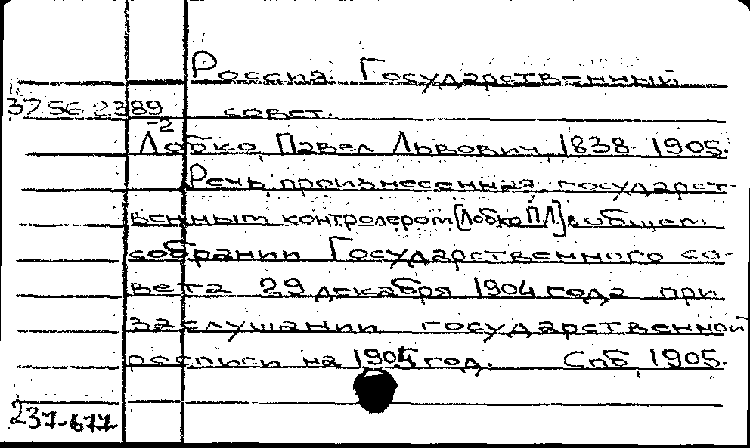 Россия. Государственный
37 56 2389 совет.
-2
Лобко, Павел Львович, 1838-1905.
Речь, произнесенная государст-
венным контролером [Лобко П.Л.] в общем
собрании Государственного со-
вета 29 декабря 1904 года при
заслушании государственной
росписи на 1905 год. Спб, 1905.
237-677